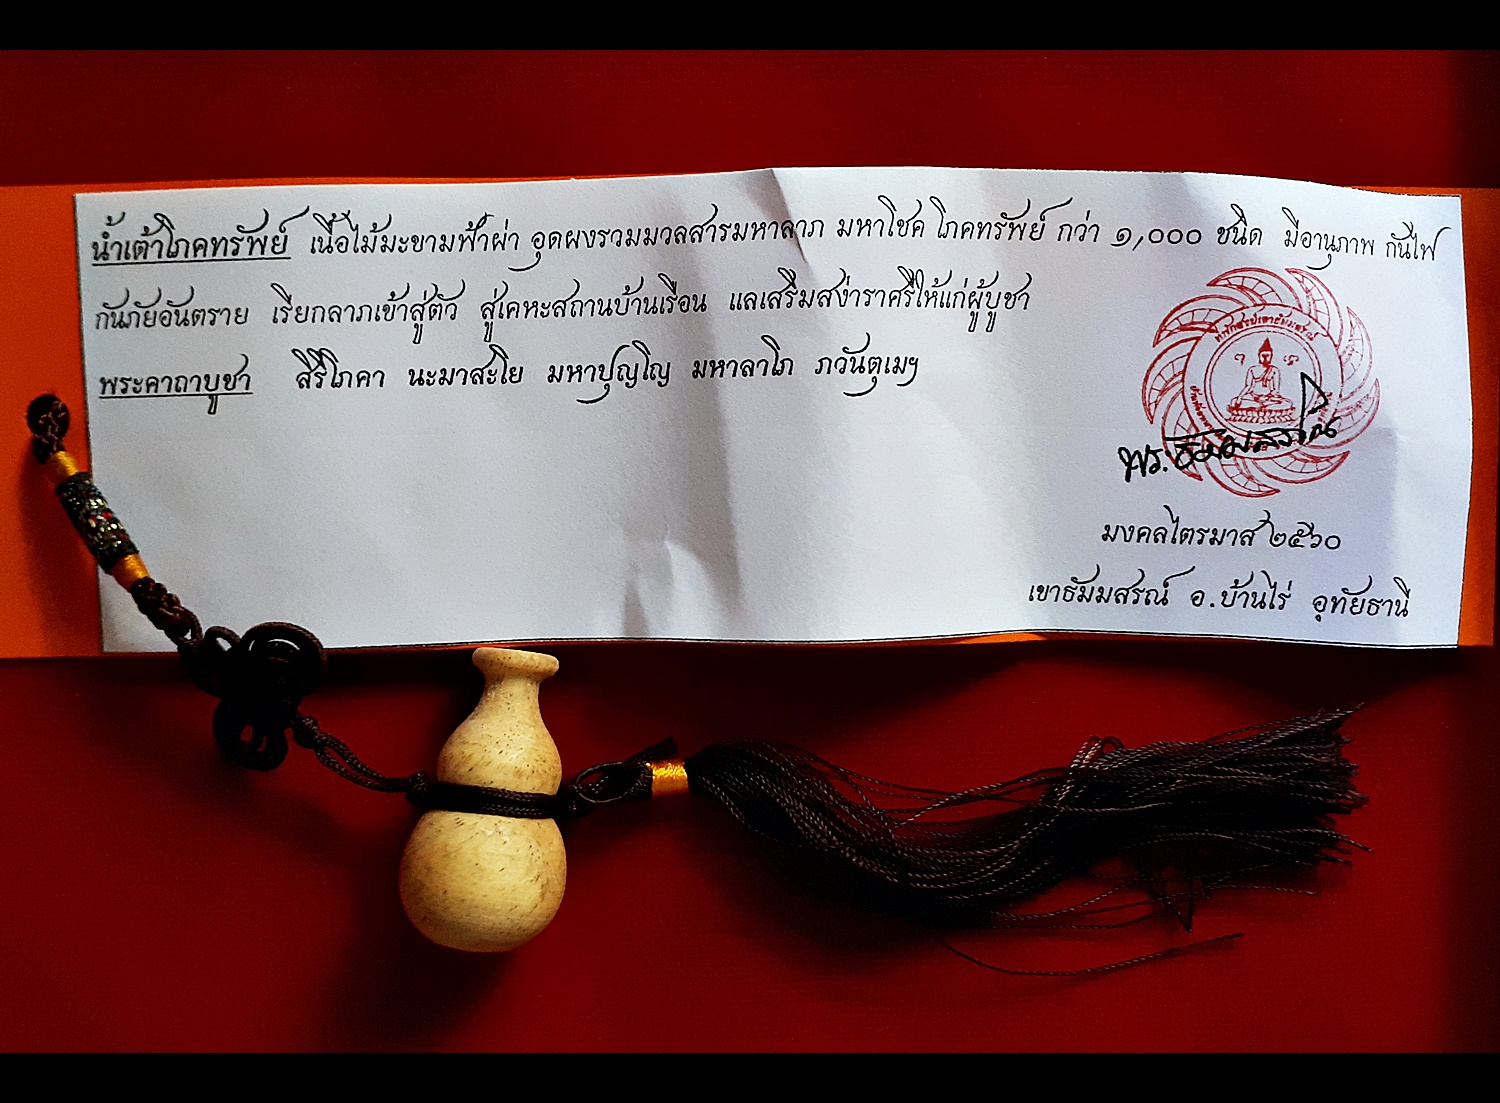 น้ำเต้าโภคทรัพย์ เนื้อไม้มะขามฟ้าผ่า อุดผงรวมมวลสารมหาลาภ มหาโชค โภคทรัพย์ กว่า ๑,๐๐๐ ชนิด มีอานุภาพ กันไฟ
กันภัยอันตราย เรียกลาภเข้าสู่ตัว สู่เคหะสถานบ้านเรือน แลเสริมสง่าราศรีให้แก่ผู้บูชา
พระคาถาบูชา สิริโภคา นะมาสะโย มหาปุญโญ มหาลาโภ ภวันตุเมฯ
มงคลไตรมาส ๒๕๖๐
เขาธัมมสรณ์ อ.บ้านไร่ อุทัยธานี